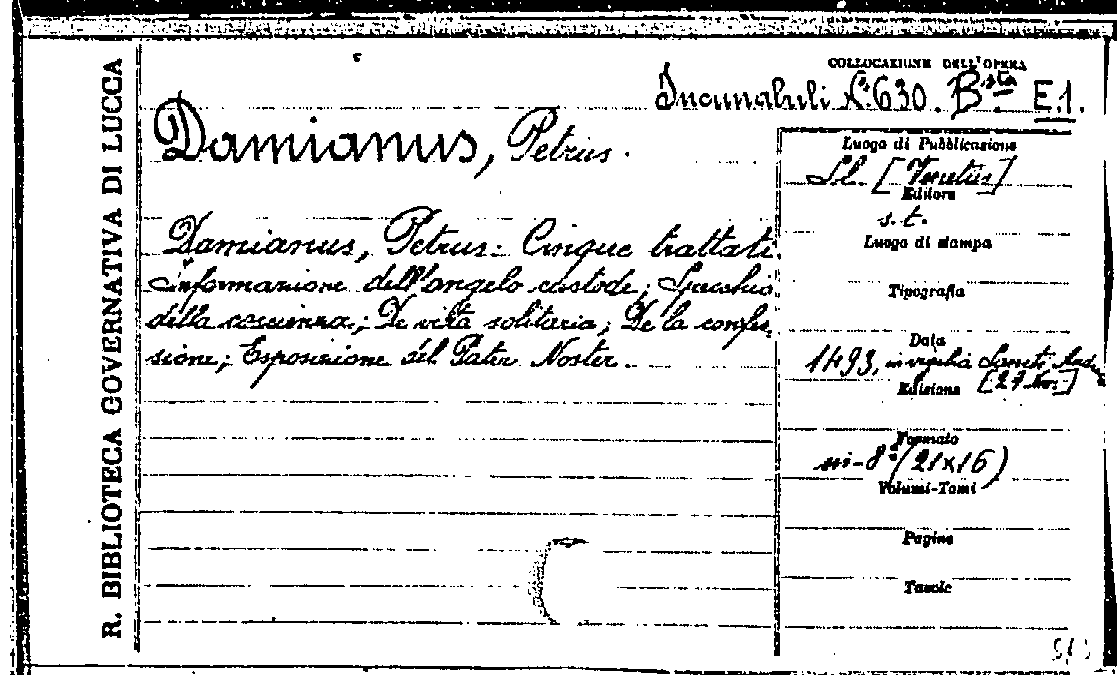 R. BIBLIOTECA GOVERNATIVA DI LUCCA
COLLOCAZIONE DELL'OPERA
Incunabuli N.º 630. Bsta E.1.
Damianus, Petrus.
Damianus, Petrus - Cinque trattati:
informazione dell'angelo custode; Specchio
della coscienza; De vita solitaria; De la confes-
sione; Esposizione del Pater Noster.
Luogo di Pubblicazione
S.l. [Venetiis]
Editore
s. t.
Luogo di stampa
Tipografia
Data
1493, in vigilia Sancti
Edizione [27 Nov.]
Formato
in-8º (21x16)
Volumi-Tomi
Pagine
Tavole